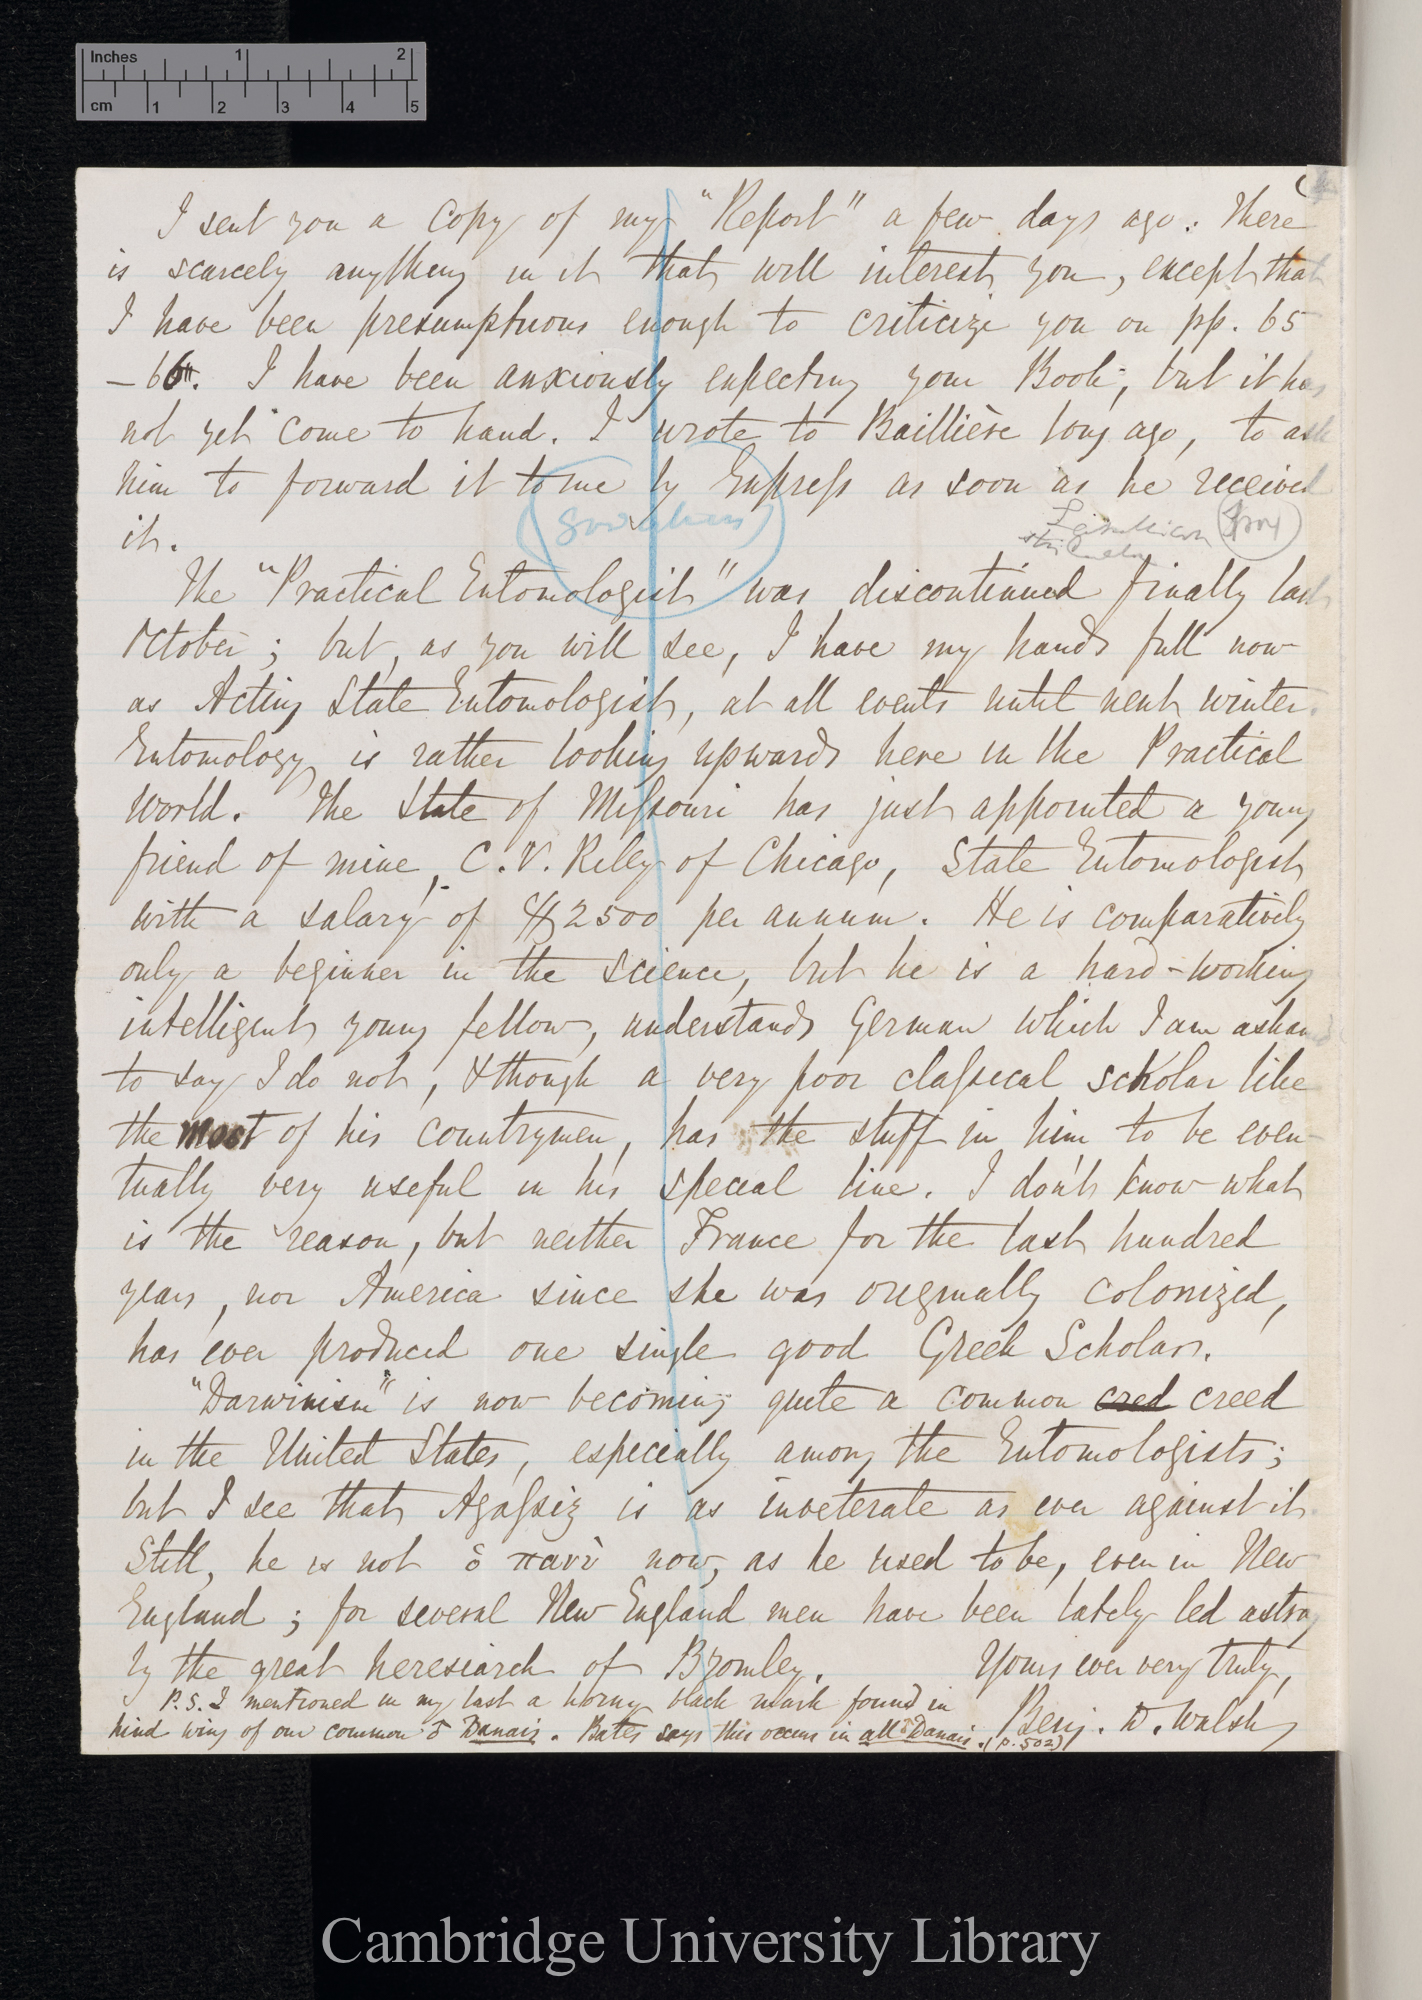 Inches 1 2
cm 1 2 3 4 5
I sent you a copy of my "Report" a few days ago. There
is scarcely anything in it that will interest you, except that
I have been presumptuous enough to criticize you on pp. 65
—66. I have been anxiously expecting your Book; but it has
not yet come to hand. I wrote to Baillière long ago, to ask
him to forward it to me by Express as soon as he received
it.
The "Practical Entomologist" was discontinued finally last
October; but, as you will see, I have my hands full now
as Acting State Entomologist, at all events until next winter.
Entomology is rather looking upwards here in the Practical
World. The State of Missouri has just appointed a young
friend of mine, C. V. Riley of Chicago, State Entomologist
with a salary of $2500 per annum. He is comparatively
only a beginner in the science, but he is a hard-working
intelligent young fellow, understands German which I am ashamed
to say I do not, & though a very poor classical scholar like
the most of his countrymen, has the stuff in him to be even-
tually very useful in his special line. I don't know what
is the reason, but neither France for the last hundred
years, nor America since she was originally colonized,
has ever produced one single good Greek Scholar.
"Darwinism" is now becoming quite a common cred creed
in the United States, especially among the Entomologists;
but I see that Agassiz is as inveterate as ever against it.
Still, he is not ὁ πανὺ now, as he used to be, even in New
England; for several New England men have been lately led astray
by the great heresiarch of Bromley. Yours ever very truly,
P.S. I mentioned in my last a horny black mark found in
hind wing of our common ♂ Danais. Bates says this occurs in all ♂ Danais. (p. 502)
Benj. D. Walsh
Cambridge University Library